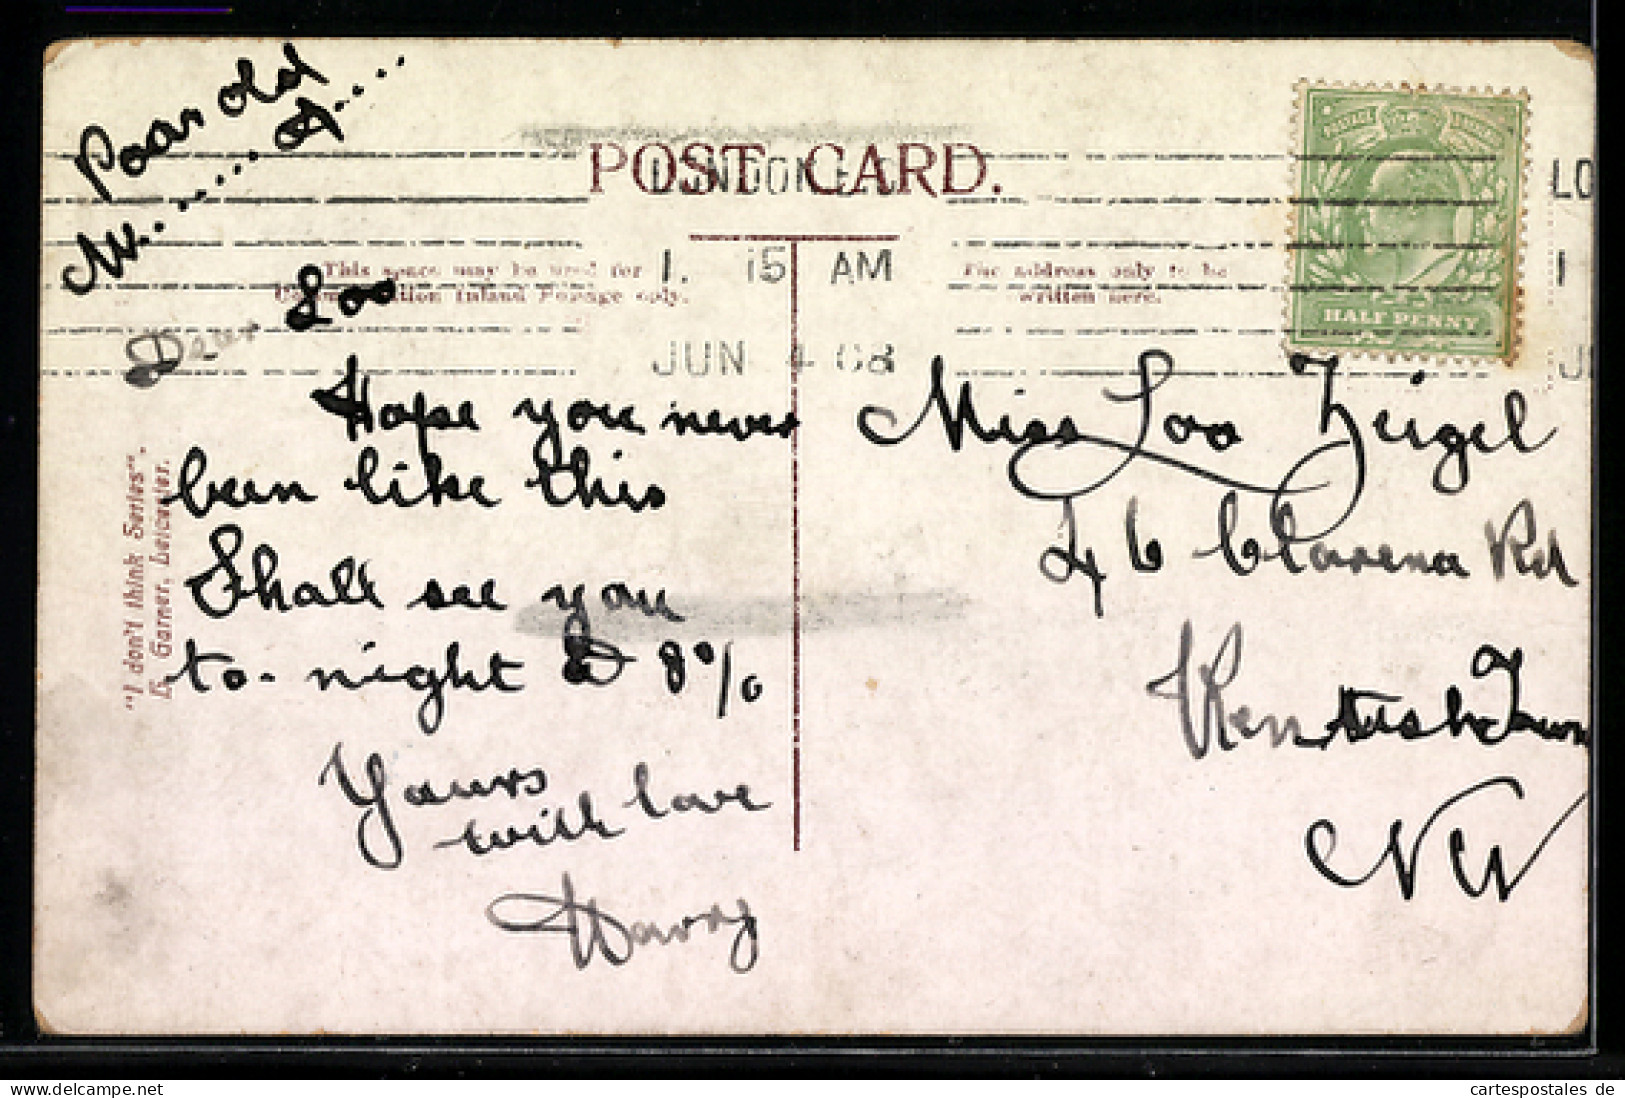 Poor old
M........ A....
POST CARD.
LONDON
1. 15 AM
JUN 4 08
This space may be used for
Communication Inland Postage only.
The address only to be
written here.
HALF PENNY
LO
1
JU
Dear Loo
Hope you never
been like this
Shall see you
to-night @ 8 o/o
Yours
with love
Harry
Miss Loo Zeigel
46 Clarena Rd
Kentish Town
NW
"I don't think Series".
E. Garner, Leicester.
cartespostales de